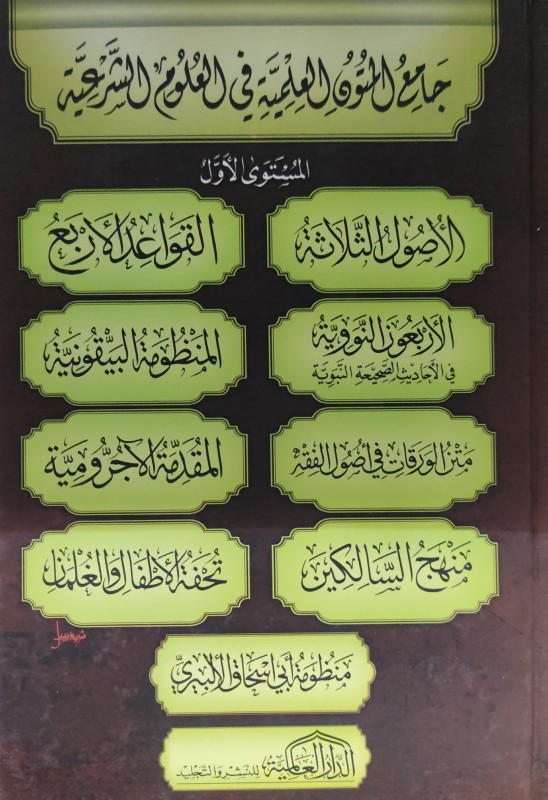 جَامِعُ المُتُونِ العِلْمِيَّةِ فِي العُلُومِ الشَّرْعِيَّةِ
المُسْتَوَى الأَوَّلُ
الأُصُولُ الثَّلَاثَةُ
القَوَاعِدُ الأَرْبَعُ
الأَرْبَعُونَ النَّوَوِيَّةُ
فِي الأَحَادِيثِ الصَّحِيحَةِ النَّبَوِيَّةِ
المَنْظُومَةُ البَيْقُونِيَّةُ
مَتْنُ الوَرَقَاتِ فِي أُصُولِ الفِقْهِ
المُقَدِّمَةُ الآجُرُّومِيَّةُ
مَنْهَجُ السَّالِكِينَ
تُحْفَةُ الأَطْفَالِ وَالغِلْمَانِ
مَنْظُومَةُ أَبِي إِسْحَاقَ الأَلْبِيرِيِّ
الدَّارُ العَالَمِيَّةُ لِلنَّشْرِ وَالتَّجْلِيد